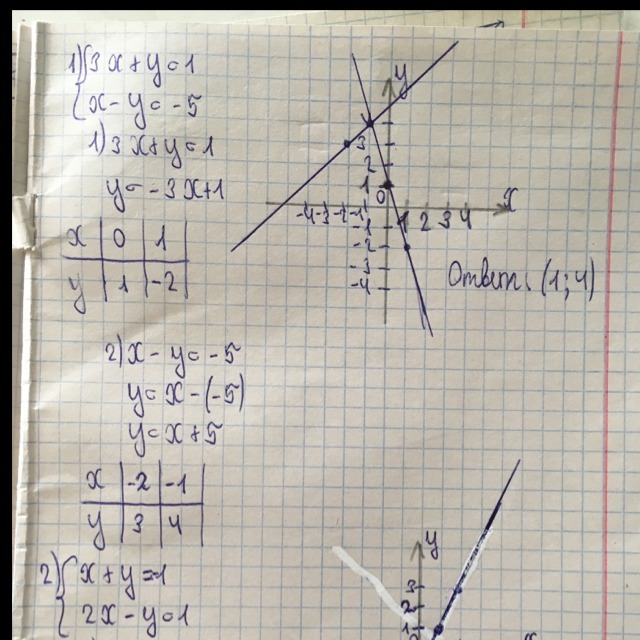 1) { 3x + y = 1
x - y = -5
1) 3x + y = 1
y = -3x + 1
x | 0 | 1
y | 1 | -2
y
3
2
1
0
-4 -3 -2 -1
1 2 3 4
x
-1
-2
-3
-4
Ответ: (1; 4)
2) x - y = -5
y = x - (-5)
y = x + 5
x | -2 | -1
y | 3 | 4
2) { x + y = 1
2x - y = 1
y
3
2
1
x